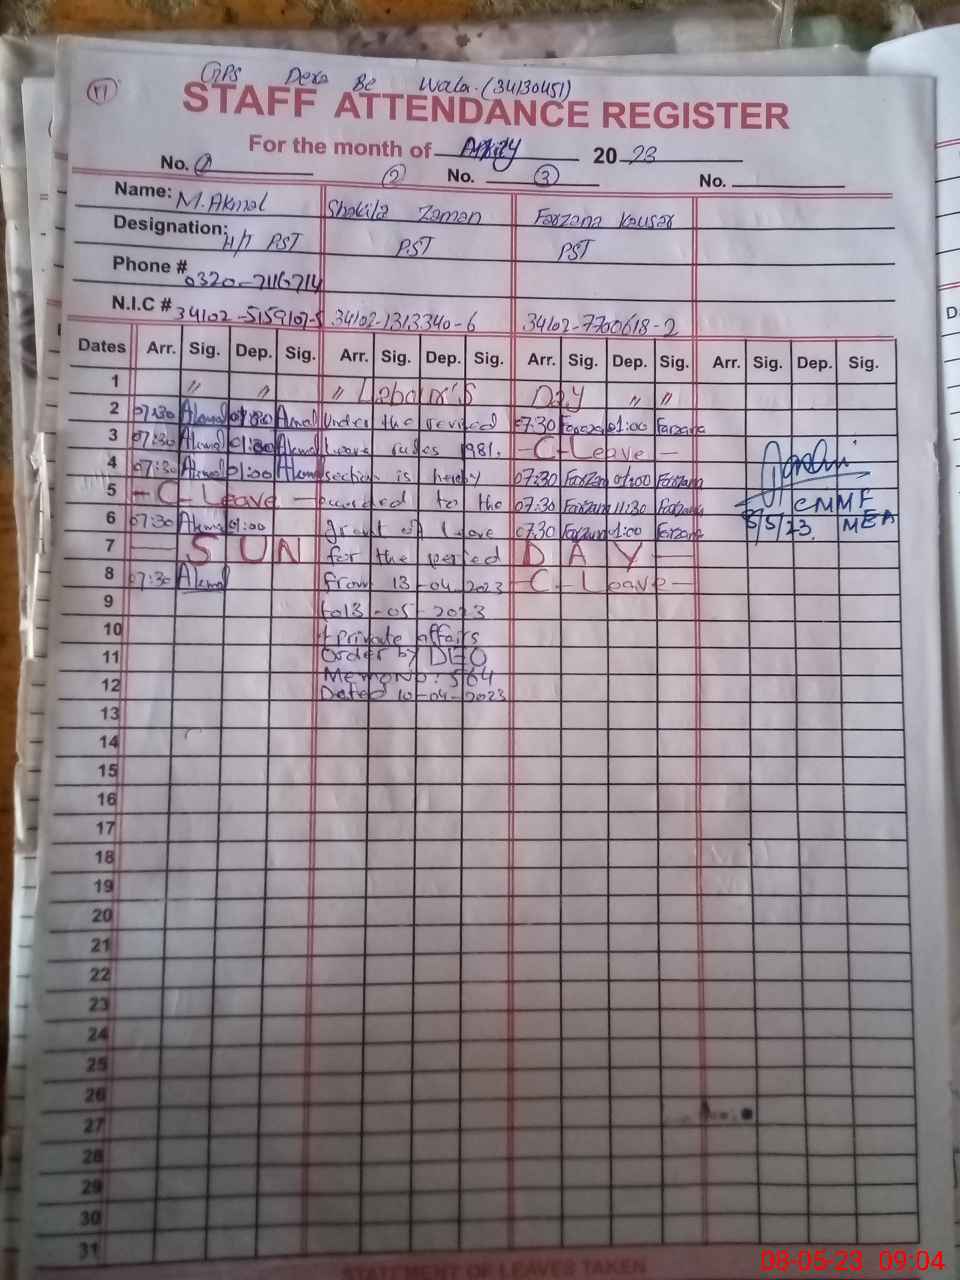 (21)
GPS Dera Be Wala. (34130451)
STAFF ATTENDANCE REGISTER
For the month of 2023
No. 1 2 No. 3 No.
Name: M. Akmal Shakila Zaman Farzana Kausar
Designation: H/T PST PST PST
Phone # 0320-7116714
N.I.C # 34102-5159107-5 34102-1313340-6 34102-7700618-2
Dates Arr. Sig. Dep. Sig. Arr. Sig. Dep. Sig. Arr. Sig. Dep. Sig. Arr. Sig. Dep. Sig.
1 " " " Labour's Day " "
2 07:30 Akmal 01:00 Akmal Under the revised 07:30 Farzana 01:00 Farzana
3 07:30 Akmal 01:00 Akmal leave rules 1981. -C-Leave-
4 07:30 Akmal 01:00 Akmal section is hereby 07:30 Farzana 01:00 Farzana
5 -C-Leave- to the 07:30 Farzana 11:30 Farzana CMMF
6 07:30 Akmal 01:00 grant of leave 07:30 Farzana 1:00 Farzana 8/5/23. MEA
7 SUN for the period DAY
8 07:30 Akmal from 13-04-2023 -C-Leave-
9 to 13-05-2023
10 + Private affairs
11 Order by DEO
Memo No: 564
12 Dated 10-04-2023
13
14
15
16
17
18
19
20
21
22
23
24
25
26
27
28
29
30
31
STATEMENT OF LEAVES TAKEN
08-05-23 09:04